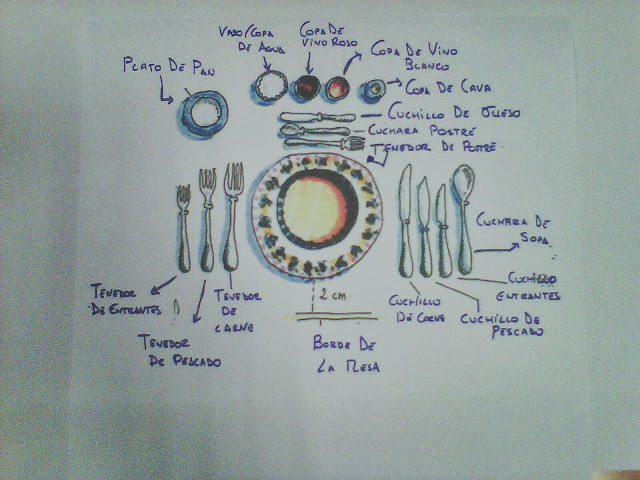 VASO/COPA
DE AGUA
COPA DE
VINO ROJO
COPA DE VINO
BLANCO
PLATO DE PAN
COPA DE CAVA
CUCHILLO DE QUESO
CUCHARA POSTRE
TENEDOR DE POSTRE
CUCHARA DE
SOPA
CUCHILLO
ENTRANTES
TENEDOR
DE ENTRANTES
TENEDOR
DE
CARNE
2 cm
CUCHILLO
DE CARNE
CUCHILLO DE
PESCADO
TENEDOR
DE PESCADO
BORDE DE
LA MESA